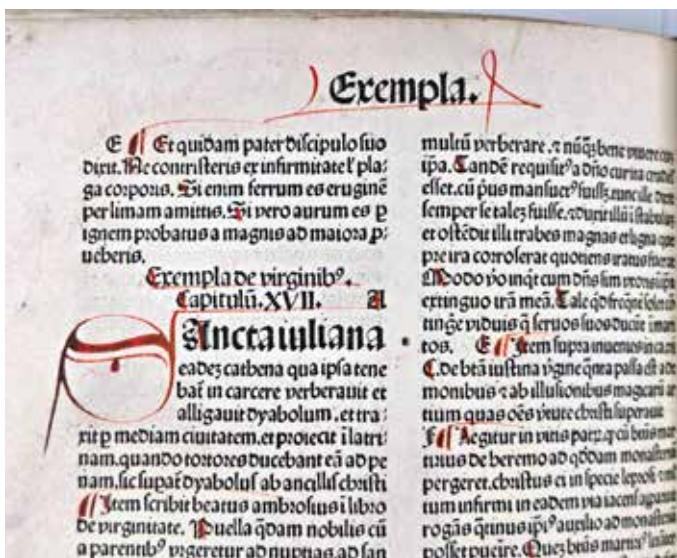 Exempla.
E Et quidam pater discipulo suo
dixit. Ne contristeris ex infirmitate ł pla⸗
ga corporis. Si enim ferrum es eruginē
per limam amittis. Si vero aurum es p
ignem probatus a magnis ad maiora ꝓ⸗
ueheris.
Exempla de virginibꝰ.
Capitulū. XVII. A
SAncta iuliana
eadeȝ cathena qua ipsa tene
bat̄ in carcere verberauit et
alligauit dyabolum. et tra⸗
xit ꝑ mediam ciuitatem. et proiecit ī latri⸗
nam. quando tortores ducebant eā ad pe
nam. sic supat̄ dyabolꝰ ab ancillis christi
Item scribit beatus ambrosius ī libro
de virginitate. Puella q̄dam nobilis cū
a parentibꝰ vrgeretur ad nuptias. ad san
multū verberare. ⁊ nūq̄ȝ bene
ipa. Tandē requisitꝰ a dn̄o cur ita
esset. cū pͥus mansuetꝰ fuissȝ. tunc ille
semper se taleȝ fuisse. ⁊ duxit illū ī stabulū
et ostēdit illi trabes magnas et ligna que
pre ira corroserat quotiens iratus fuerat
Modo vͦo inqͥt cum dn̄s sim
extinguo irā meā. Tale qd̓ freqn̄t solet
tinḡe viduis q̄ seruos suos ducūt ī mari
tos. E Item supra inuenies in ca.
C. de btā iustina v̓gine
monibus ⁊ ab illusionibus magicarū ar
tium quas oēs v̓tute christi superauit
F Legitur in vitis patꝝ. qͥ cū btūs mar
tirius de heremo ad qd̓dam monasterium
pergeret. christus ei in specie leprosi ⁊
tum infirmi in eadem via iacens apparuit
rogās qͣtinus ipiꝰ auxilio ad monasteriū
posset puenire. Queȝ btūs martirꝰ